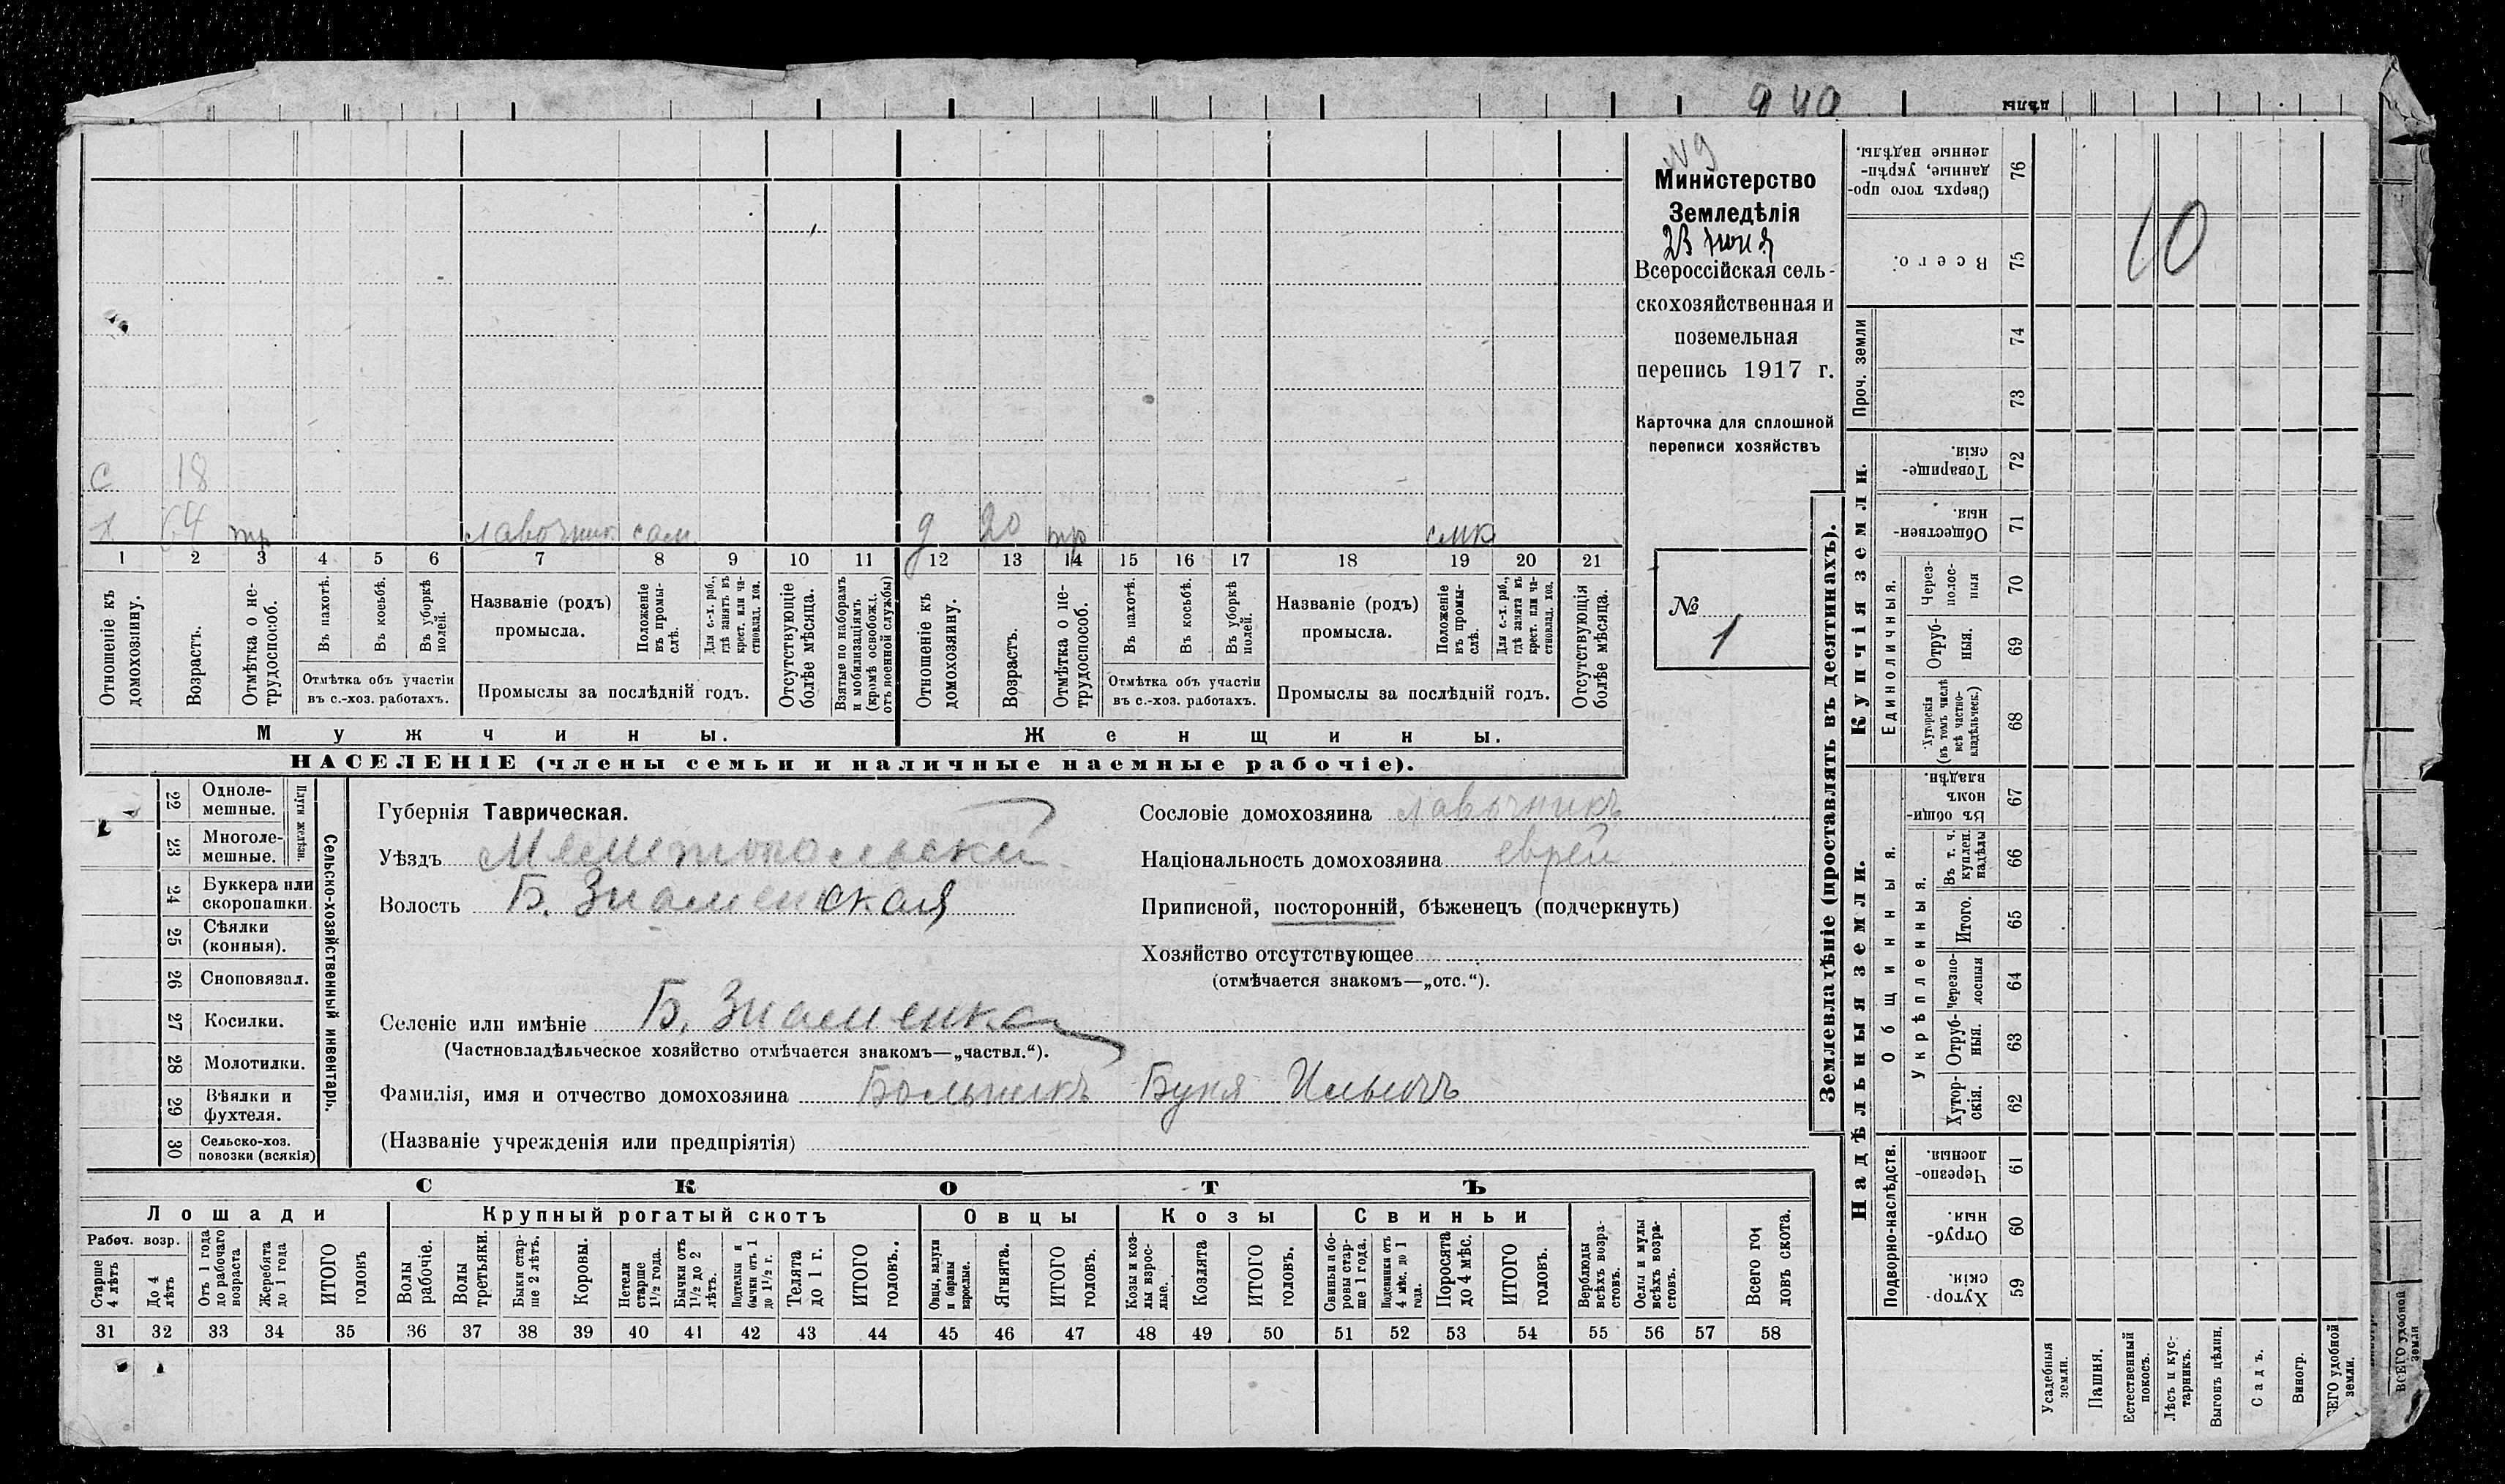 9 40
№ 9
Министерство
Земледѣлія
23 июня
Всероссійская сель-
скохозяйственная и
поземельная
перепись 1917 г.
Карточка для сплошной
переписи хозяйствъ
№
1
с 18
х 64 тр лавочник сам. д 20 тр
1 2 3 4 5 6 7 8 9 10 11 12 13 14 15 16 17 18 19 20 21
Отношеніе къ домохозяину.
Возрастъ.
Отмѣтка о не-трудоспособ.
Въ пахотѣ.
Въ косьбѣ.
Въ уборкѣ полей.
Отмѣтка объ участіи въ с.-хоз. работахъ.
Названіе (родъ) промысла.
Положеніе въ промы-слѣ.
Для с.-х. раб., гдѣ занятъ въ крест. или ча-стновлад. хоз.
Промыслы за послѣдній годъ.
Отсутствующіе болѣе мѣсяца.
Взятые по наборамъ и мобилизаціямъ (кромѣ освобожд. отъ военной службы)
Отношеніе къ домохозяину.
Возрастъ.
Отмѣтка о не-трудоспособ.
Въ пахотѣ.
Въ косьбѣ.
Въ уборкѣ полей.
Отмѣтка объ участіи въ с.-хоз. работахъ.
Названіе (родъ) промысла.
Положеніе въ промы-слѣ.
Для с.-х. раб., гдѣ занята въ крест. или ча-стновлад. хоз.
Промыслы за послѣдній годъ.
Отсутствующія болѣе мѣсяца.
Мужчины. Женщины.
НАСЕЛЕНІЕ (члены семьи и наличные наемные рабочіе).
22 Одноле-мешные.
23 Многоле-мешные.
Плуги желѣзн.
24 Буккера или скоропашки.
25 Сѣялки (конныя).
26 Сноповязал.
27 Косилки.
28 Молотилки.
29 Вѣялки и фухтеля.
30 Сельско-хоз. повозки (всякія)
Сельско-хозяйственный инвентарь.
Губернія Таврическая.
Уѣздъ Мелитопольский
Волость Б. Знаменская
Селеніе или имѣніе Б. Знаменка
(Частновладѣльческое хозяйство отмѣчается знакомъ—„частвл.“).
Фамилія, имя и отчество домохозяина Больникъ Буня Ильичъ
(Названіе учрежденія или предпріятія)
Сословіе домохозяина лавочникъ
Національность домохозяина еврей
Приписной, посторонній, бѣженецъ (подчеркнуть)
Хозяйство отсутствующее
(отмѣчается знакомъ—„отс.“).
СКОТЪ
Лошади Крупный рогатый скотъ Овцы Козы Свиньи
Рабоч. возр.
Старше 4 лѣтъ
До 4 лѣтъ
Отъ 1 года до рабочаго возраста
Жеребята до 1 года
ИТОГО головъ
Волы рабочіе.
Волы третьяки.
Быки стар-ше 2 лѣтъ.
Коровы.
Нетели старше 1½ года.
Бычки отъ 1½ до 2 лѣтъ.
Подтелки и бычки отъ 1 до 1½ г.
Телята до 1 г.
ИТОГО головъ.
Овцы, валухи и бараны взрослые.
Ягнята.
ИТОГО головъ.
Козы и коз-лы взрос-лые.
Козлята
ИТОГО головъ.
Свиньи и бо-ровы стар-ше 1 года.
Подсвинки отъ 4 мѣс. до 1 года.
Поросята до 4 мѣс.
ИТОГО головъ.
Верблюды всѣхъ возра-стовъ.
Ослы и мулы всѣхъ возра-стовъ.
Всего го-ловъ скота.
31 32 33 34 35 36 37 38 39 40 41 42 43 44 45 46 47 48 49 50 51 52 53 54 55 56 57 58
Землевладѣніе (проставлять въ десятинахъ).
Сверхъ того про-данные, укрѣп-ленные надѣлы. 76
Всего. 75
Проч. земли 74
73
Купчія земли.
Товарище-скія. 72
Обществен-ныя. 71
Единоличныя.
Через-полос-ныя 70
Отруб-ныя. 69
Хуторскія (въ томъ числѣ всѣ частно-владѣльческ.) 68
Надѣльныя земли.
Общинныя.
Въ общи-номъ владѣн. 67
Въ т. ч. куплен. надѣлы 66
Укрѣпленныя.
Итого. 65
Черезпо-лосныя 64
Отруб-ныя. 63
Хутор-скія. 62
Подворно-наслѣдств.
Черезпо-лосныя. 61
Отруб-ныя. 60
Хутор-скія. 59
10
Усадебныя земли.
Пашня.
Естественный покосъ.
Лѣсъ и кус-тарникъ.
Выгонъ цѣлин.
Садъ.
Виногр.
ВСЕГО удобной земли.